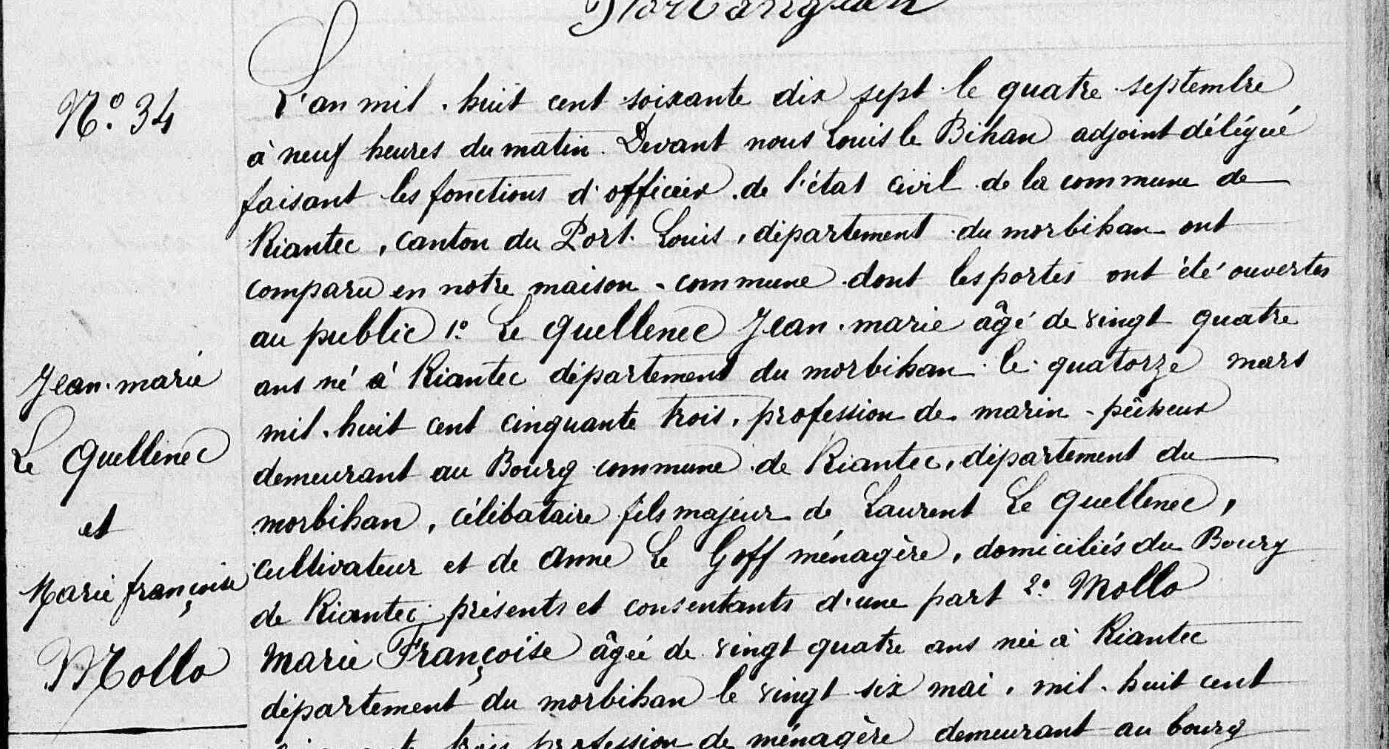 N.º 34
Jean-marie
Le Quellenec
et
Marie françoise
Mollo
L'an mil huit cent soixante dix sept le quatre septembre
à neuf heures du matin. Devant nous Louis le Bihan adjoint délégué
faisant les fonctions d'officier de l'état civil de la commune de
Riantec, canton du Port Louis, département du morbihan ont
comparu en notre maison commune dont les portes ont été ouvertes
au public 1º Le Quellenec Jean-marie âgé de vingt quatre
ans né à Riantec département du morbihan le quatorze mars
mil huit cent cinquante trois, profession de marin-pêcheur
demeurant au Bourg commune de Riantec, département du
morbihan, célibataire fils majeur de Laurent Le Quellenec,
cultivateur et de Anne Le Goff ménagère, domiciliés du Bourg
de Riantec présents et consentants d'une part 2º Mollo
Marie Françoise âgée de vingt quatre ans née à Riantec
département du morbihan le vingt six mai mil huit cent
trois profession de ménagère demeurant au bourg